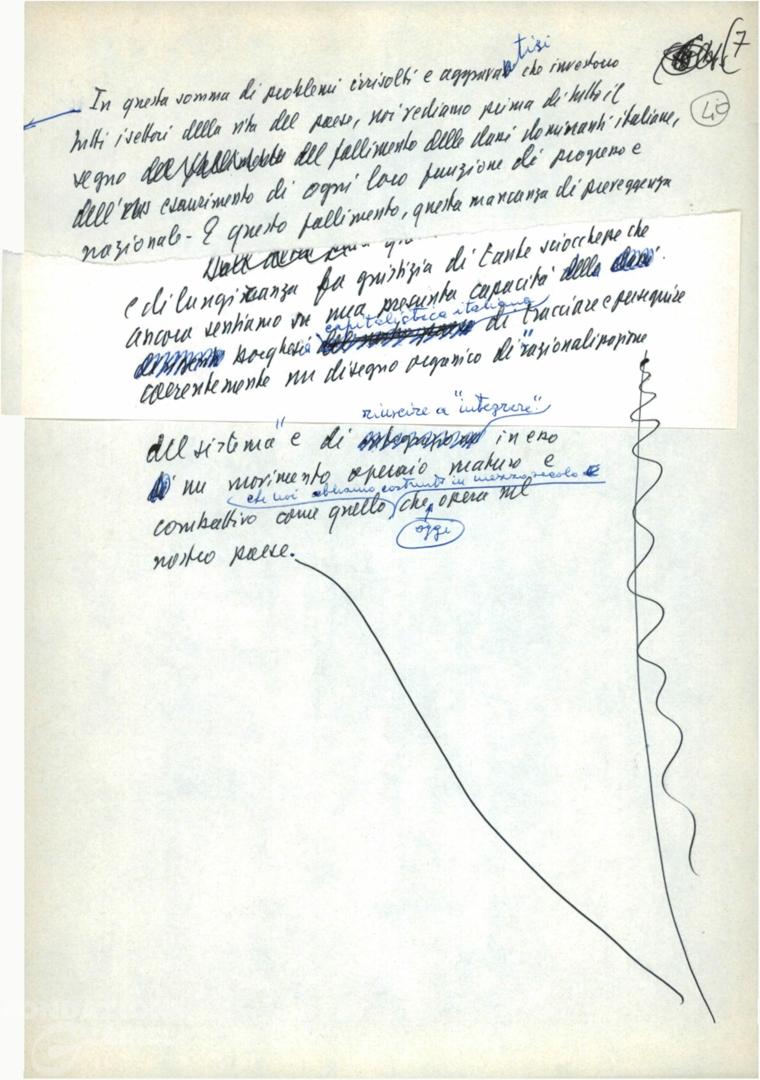 7
40
In questa somma di problemi irrisolti e aggravatisi che investono
tutti i settori della vita del paese, noi vediamo prima di tutto il
segno del fallimento delle classi dominanti italiane,
dell'esaurimento di ogni loro funzione di progresso e
nazionale - E questo fallimento, questa mancanza di preveggenza
e di lungimiranza fa giustizia di tante sciocchezze che
ancora sentiamo su una presunta capacità della
capitalistica italiana
borghesia di tracciare e perseguire
coerentemente un disegno organico di "razionalizzazione
riuscire a "integrare"
del sistema" e di in esso
un movimento operaio maturo e
che noi abbiamo costruito in mezzo secolo e
combattivo come quello che opera nel
oggi
nostro paese.